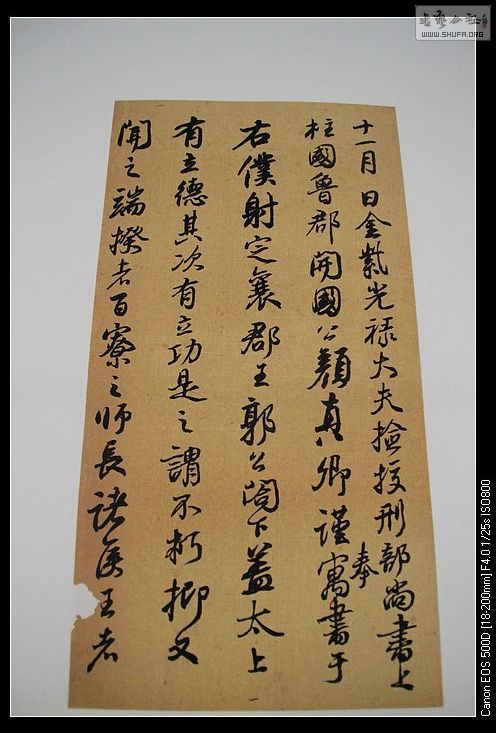 十一月日金紫光禄大夫撿挍刑部尚書上
柱國魯郡開國公顏真卿謹奉寓書于
右僕射定襄郡王郭公閤下蓋太上
有立德其次有立功是之謂不朽抑又
聞之端揆者百寮之師長諸侯王者
書藝公社
WWW.SHUFA.ORG
Canon EOS 500D [18-200mm] F4.0 1/25s ISO800